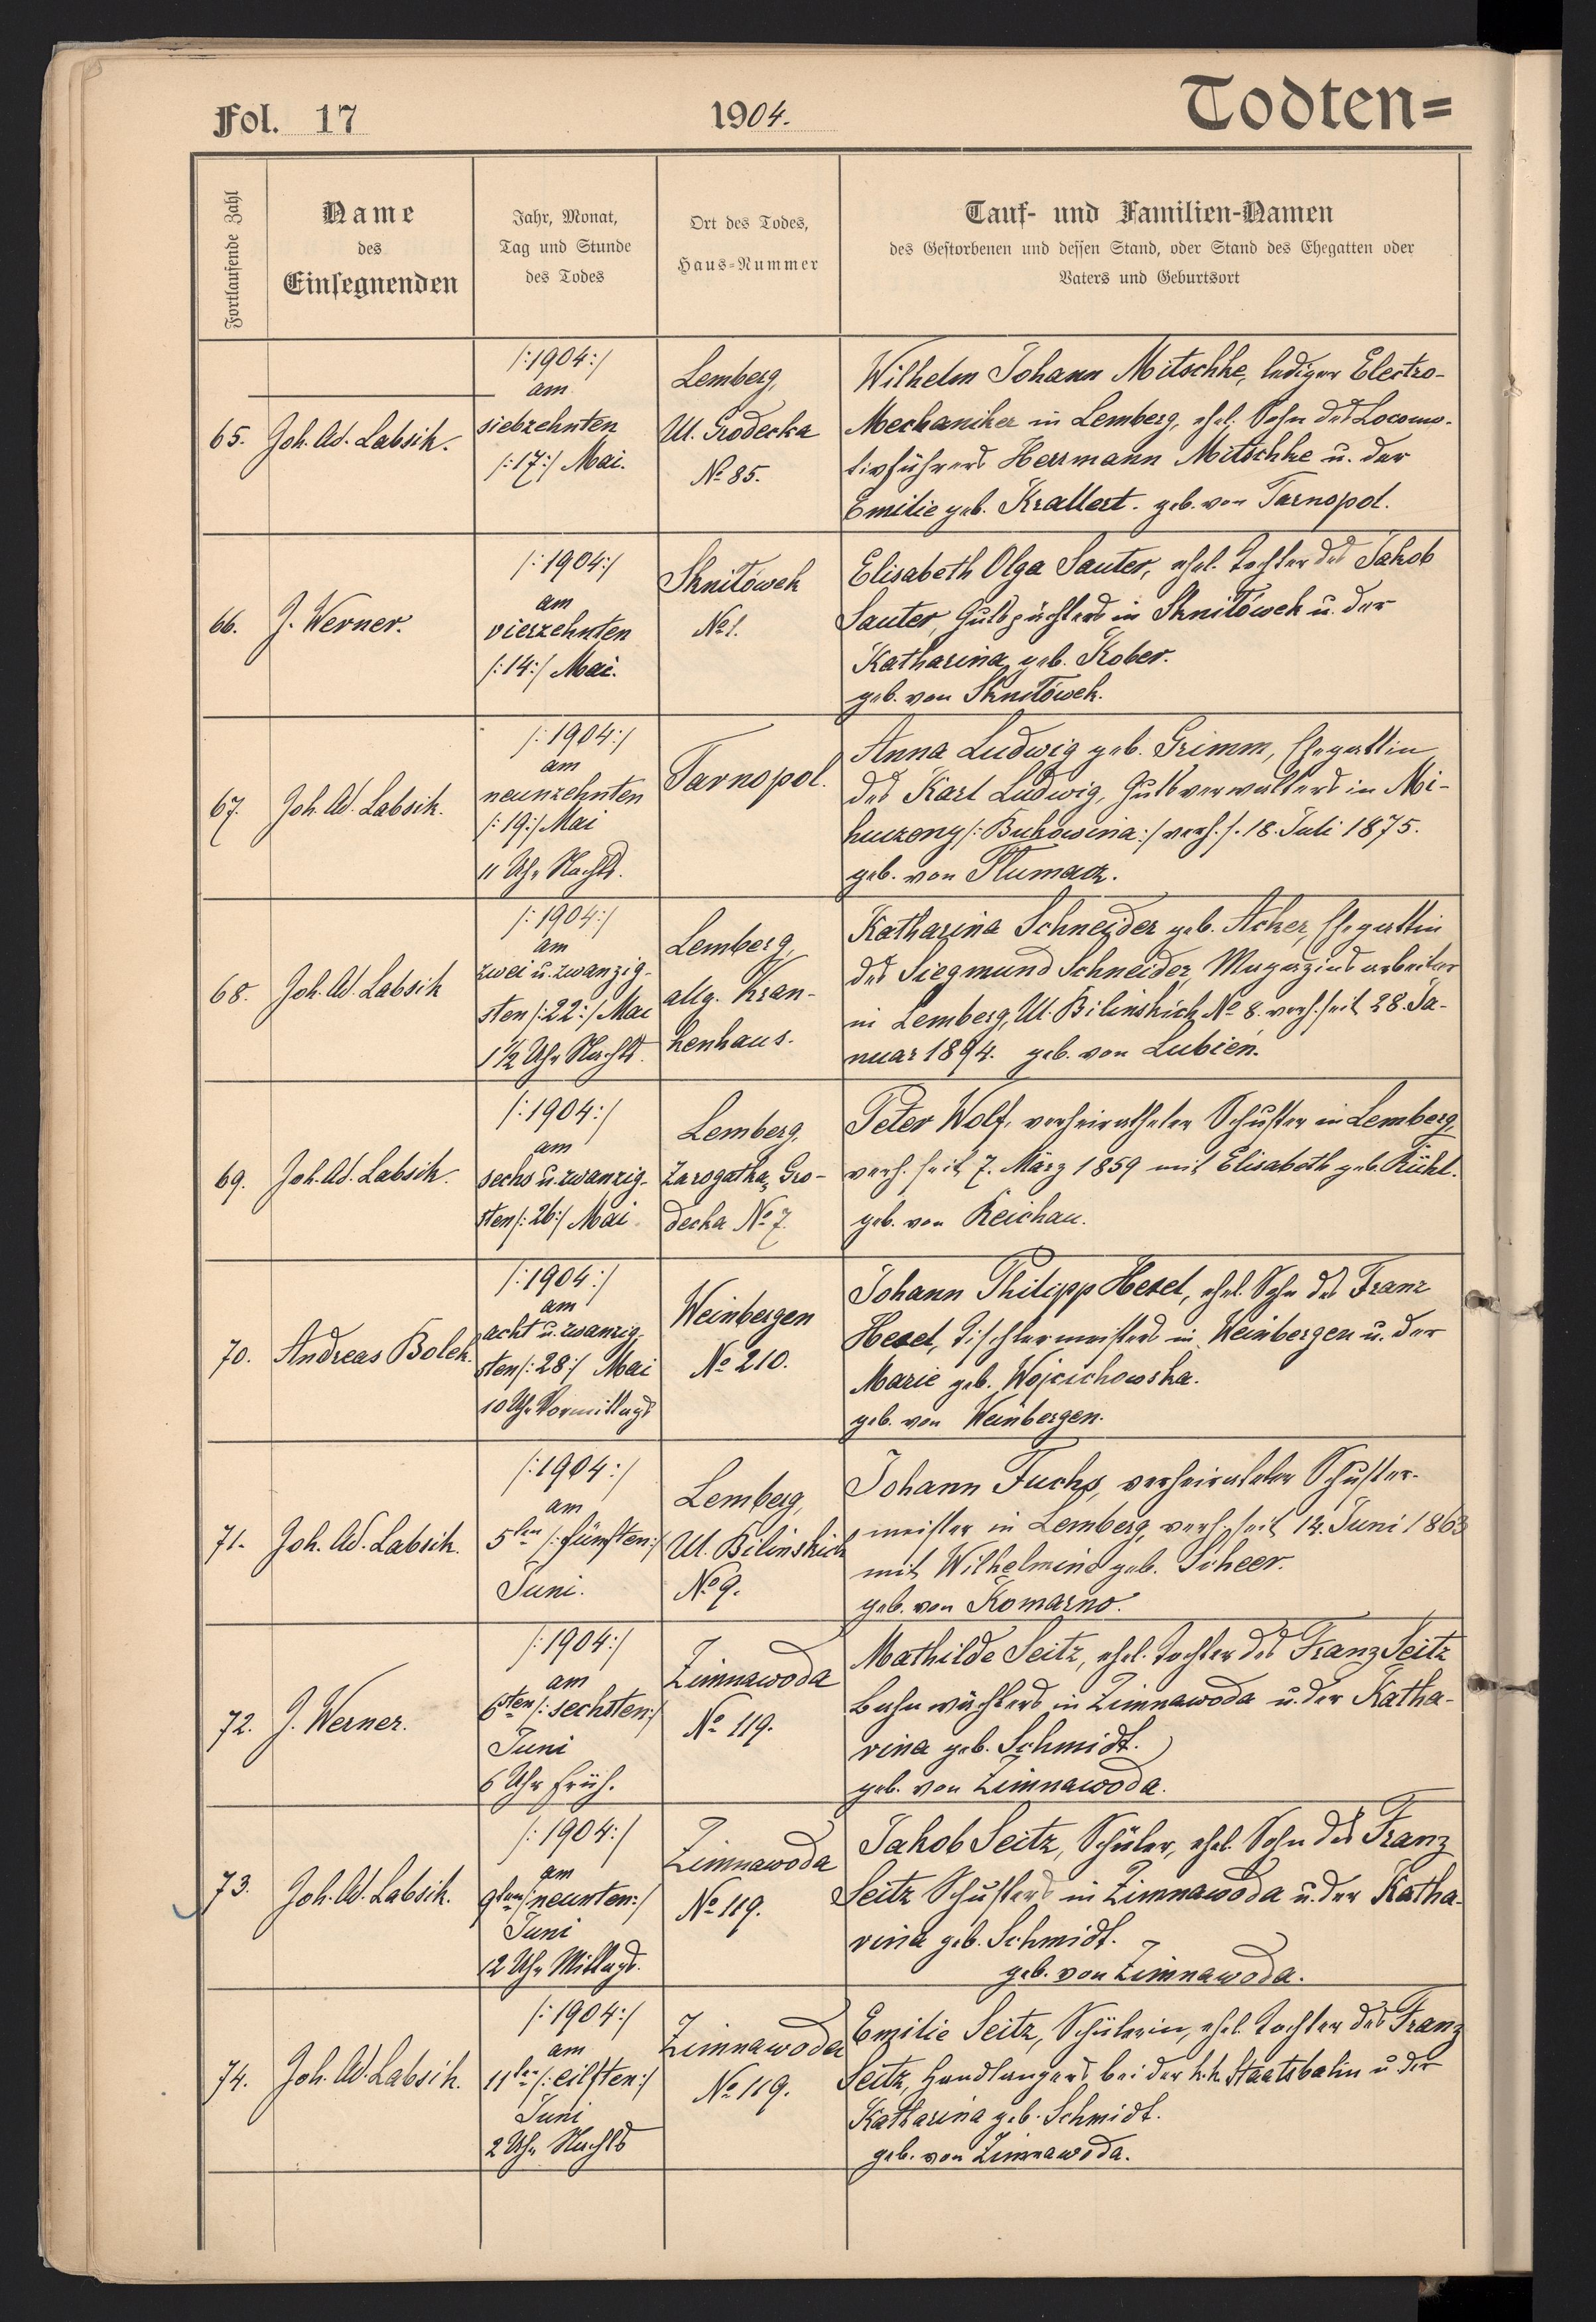 Fol. 17
1904.
Todten=
Fortlaufende Zahl
Name
des
Einsegnenden
Jahr, Monat,
Tag und Stunde
des Todes
Ort des Todes,
Haus=Nummer
Tauf- und Familien-Namen
des Gestorbenen und dessen Stand, oder Stand des Ehegatten oder
Vaters und Geburtsort
65.
Joh. Ad. Labsik.
/:1904:/
am
siebzehnten
/:17:/ Mai.
Lemberg,
Ul. Grodecka
№ 85.
Wilhelm Johann Mitschke, lediger Electro-
Mechaniker in Lemberg, ehel. Sohn des Locomo-
tivführers Herrmann Mitschke u. der
Emilie geb. Krallert. geb. von Tarnopol.
66.
J. Werner.
/:1904:/
am
vierzehnten
/:14:/ Mai.
Sknitówek
№ 1.
Elisabeth Olga Sauter, ehel. Tochter des Jakob
Sauter, Gutspächters in Sknitówek u. der
Katharina geb. Kober.
geb. von Sknitówek.
67.
Joh. Ad. Labsik.
/:1904:/
am
neunzehnten
/:19:/ Mai
11 Uhr Nachts.
Tarnopol.
Anna Ludwig geb. Grimm, Ehegattin
des Karl Ludwig, Gutsverwalters in Mi-
huczeny /:Bukowina:/ verh. s. 18. Juli 1875.
geb. von Tlumacz.
68.
Joh. Ad. Labsik
/:1904:/
am
zwei u. zwanzig-
sten /:22:/ Mai
1½ Uhr Nachts.
Lemberg,
allg. Kran-
kenhaus.
Katharina Schneider geb. Acker, Ehegattin
des Siegmund Schneider, Magazinsarbeiter
in Lemberg, Ul. Bilinskich № 8. verh. seit 28. Ja-
nuar 1894. geb. von Lubień.
69.
Joh. Ad. Labsik.
/:1904:/
am
sechs u. zwanzig-
sten /:26:/ Mai.
Lemberg,
Zarogatka, Gro-
decka № 7.
Peter Wolf, verheiratheter Schuster in Lemberg,
verh. seit 7. März 1859 mit Elisabeth geb. Rühl.
geb. von Reichau.
70.
Andreas Bolek.
/:1904:/
am
acht u. zwanzig-
sten /:28:/ Mai
10 Uhr Vormittags
Weinbergen
№ 210.
Johann Philipp Hexel, ehel. Sohn des Franz
Hexel, Tischlermeisters in Weinbergen u. der
Marie geb. Wojcichowska.
geb. von Weinbergen.
71.
Joh. Ad. Labsik.
/:1904:/
am
5ten /:fünften:/
Juni.
Lemberg,
Ul. Bilinskich
№ 9.
Johann Fuchs, verheirateter Schuster-
meister in Lemberg, verh. seit 14. Juni 1863
mit Wilhelmine geb. Scheer.
geb. von Komarno.
72.
J. Werner.
/:1904:/
am
6sten /:sechsten:/
Juni
6 Uhr früh.
Zimnawoda
№ 119.
Mathilde Seitz, ehel. Tochter des Franz Seitz
Bahnwächters in Zimnawoda u. der Katha-
rina geb. Schmidt.
geb. von Zimnawoda.
73.
Joh. Ad. Labsik.
/:1904:/
am
9ten /:neunten:/
Juni
12 Uhr Mittags.
Zimnawoda
№ 119.
Jakob Seitz, Schüler, ehel. Sohn des Franz
Seitz Schusters in Zimnawoda u. der Katha-
rina geb. Schmidt.
geb. von Zimnawoda.
74.
Joh. Ad. Labsik.
/:1904:/
am
11ten /:eilften:/
Juni
2 Uhr Nachts
Zimnawoda
№ 119.
Emilie Seitz, Schülerin, ehel. Tochter des Franz
Seitz, Handlangers bei der k.k. Staatsbahn u. der
Katharina geb. Schmidt.
geb. von Zimnawoda.